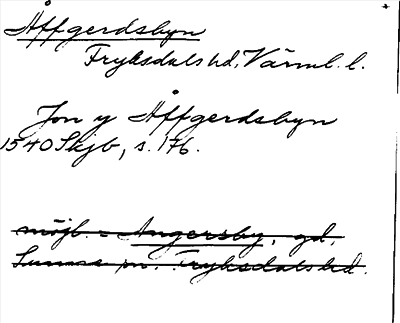 Åffgerdsbyn
Fryksdals hd, Värml. l.
Jon y Åffgerdsbyn
1540 Skjb, s. 176.
möjl. = Angersby, gd,
Sunne sn. Fryksdals hd.